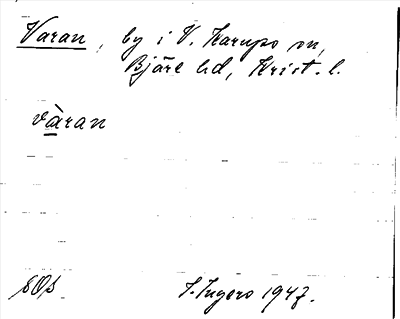 Varan, by i V. Karups sn,
Bjäre hd, Krist. l.
vàran
SOs I. Ingers 1947.